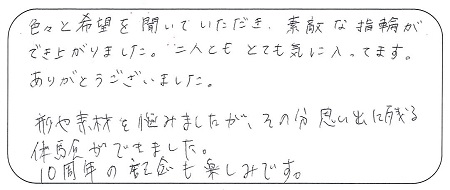 色々と希望を聞いていただき、素敵な指輪が
でき上がりました。二人とも とても気に入ってます。
ありがとうございました。
形や素材を悩みましたが、その分 思い出に残る
体験ができました。
10周年の記念も楽しみです。